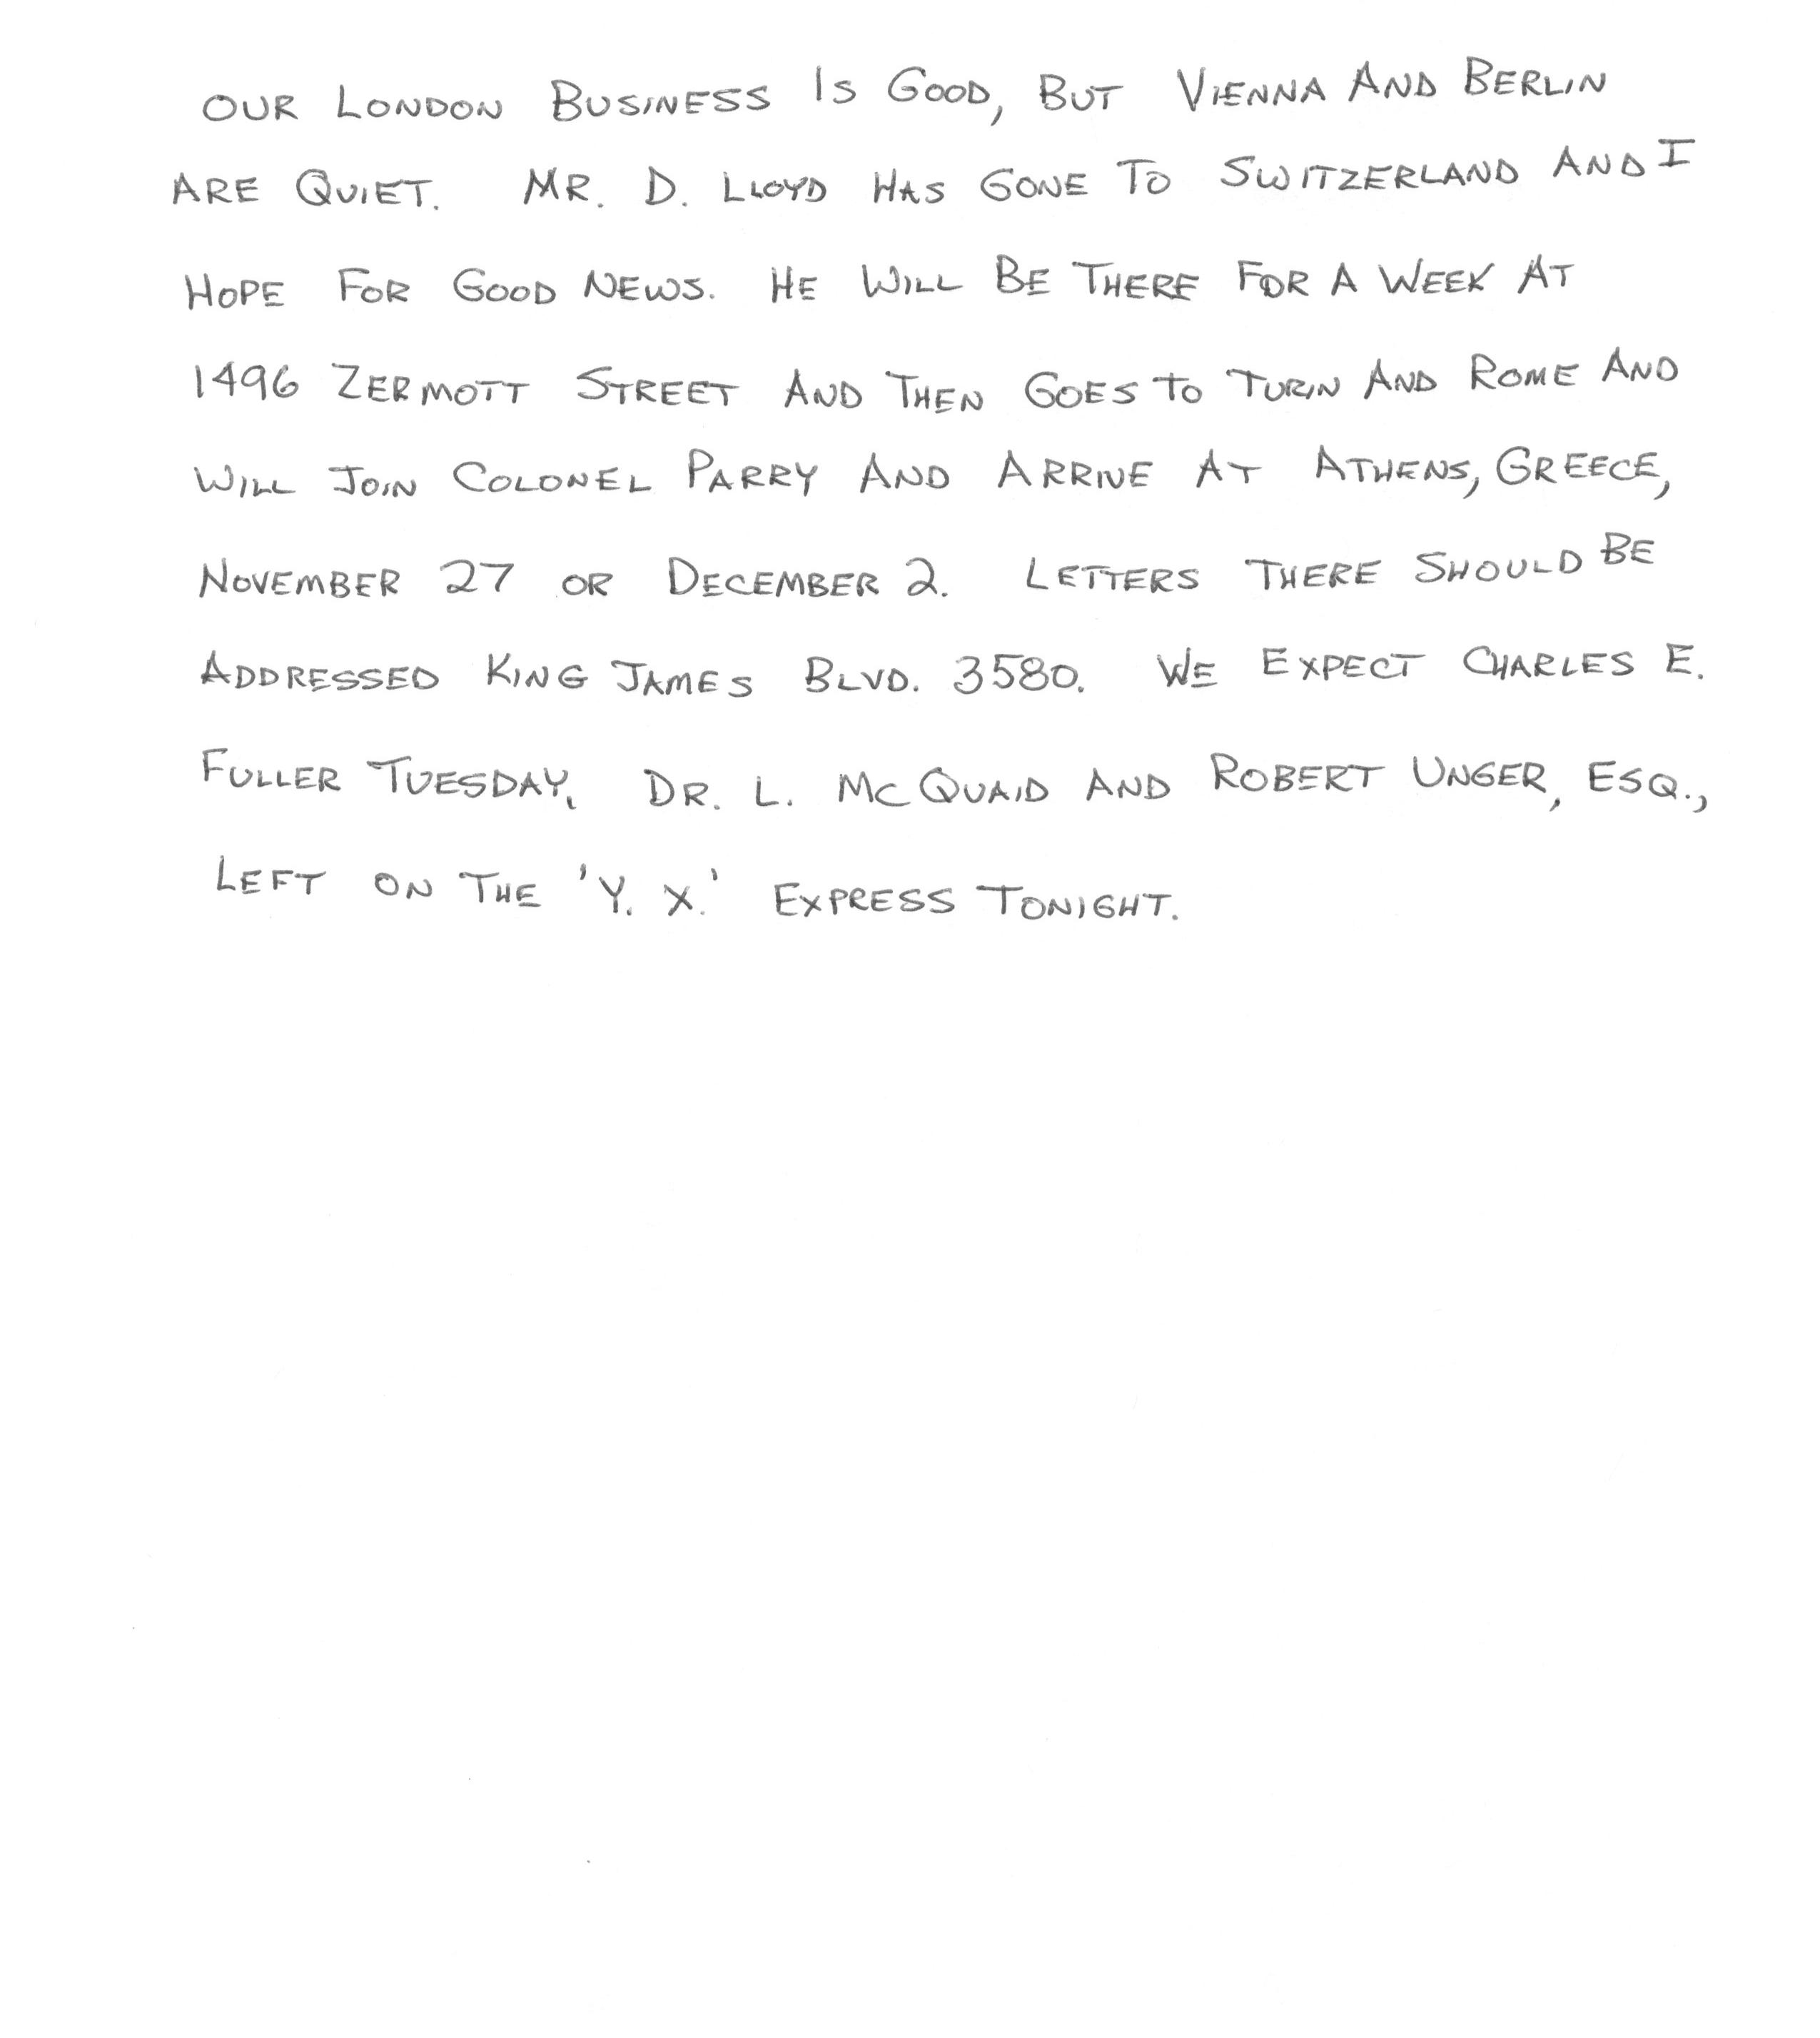 OUR LONDON BUSINESS IS GOOD, BUT VIENNA AND BERLIN
ARE QUIET. MR. D. LLOYD HAS GONE TO SWITZERLAND AND I
HOPE FOR GOOD NEWS. HE WILL BE THERE FOR A WEEK AT
1496 ZERMOTT STREET AND THEN GOES TO TURIN AND ROME AND
WILL JOIN COLONEL PARRY AND ARRIVE AT ATHENS, GREECE,
NOVEMBER 27 OR DECEMBER 2. LETTERS THERE SHOULD BE
ADDRESSED KING JAMES BLVD. 3580. WE EXPECT CHARLES E.
FULLER TUESDAY. DR. L. MCQUAID AND ROBERT UNGER, ESQ.,
LEFT ON THE 'Y. X.' EXPRESS TONIGHT.